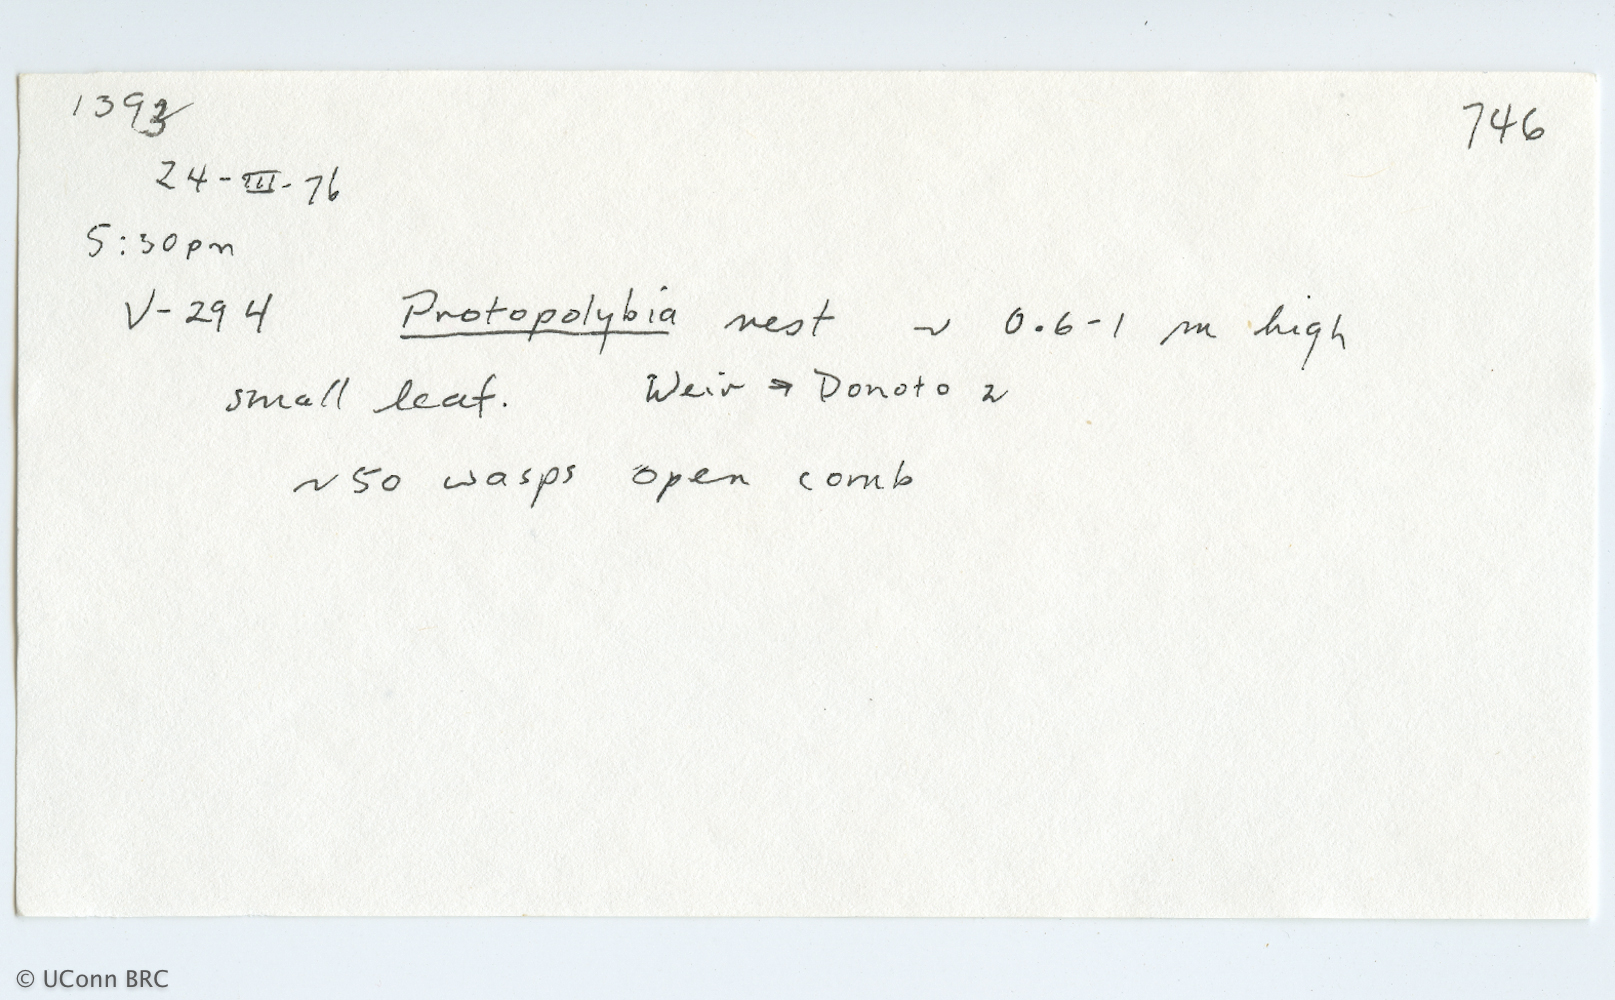 1393
746
24-III-76
5:30pm
V-294 Protopolybia nest ~ 0.6-1 m high
small leaf. Weir → Donato 2
~50 wasps open comb
© UConn BRC